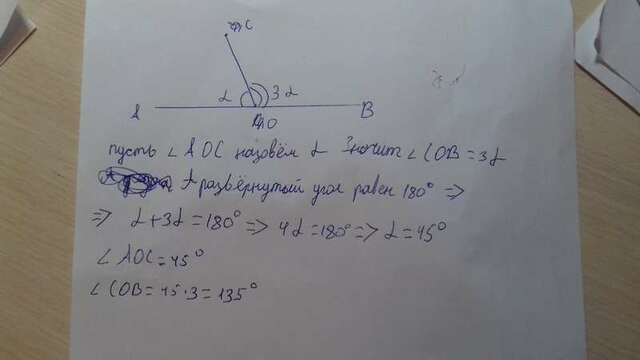 A
α
O
3α
C
B
пусть ∠AOC назовём α Значит ∠COB = 3α
развёрнутый угол равен 180° ⇒
⇒ α+3α = 180° ⇒ 4α = 180° ⇒ α = 45°
∠AOC = 45°
∠COB = 45·3 = 135°